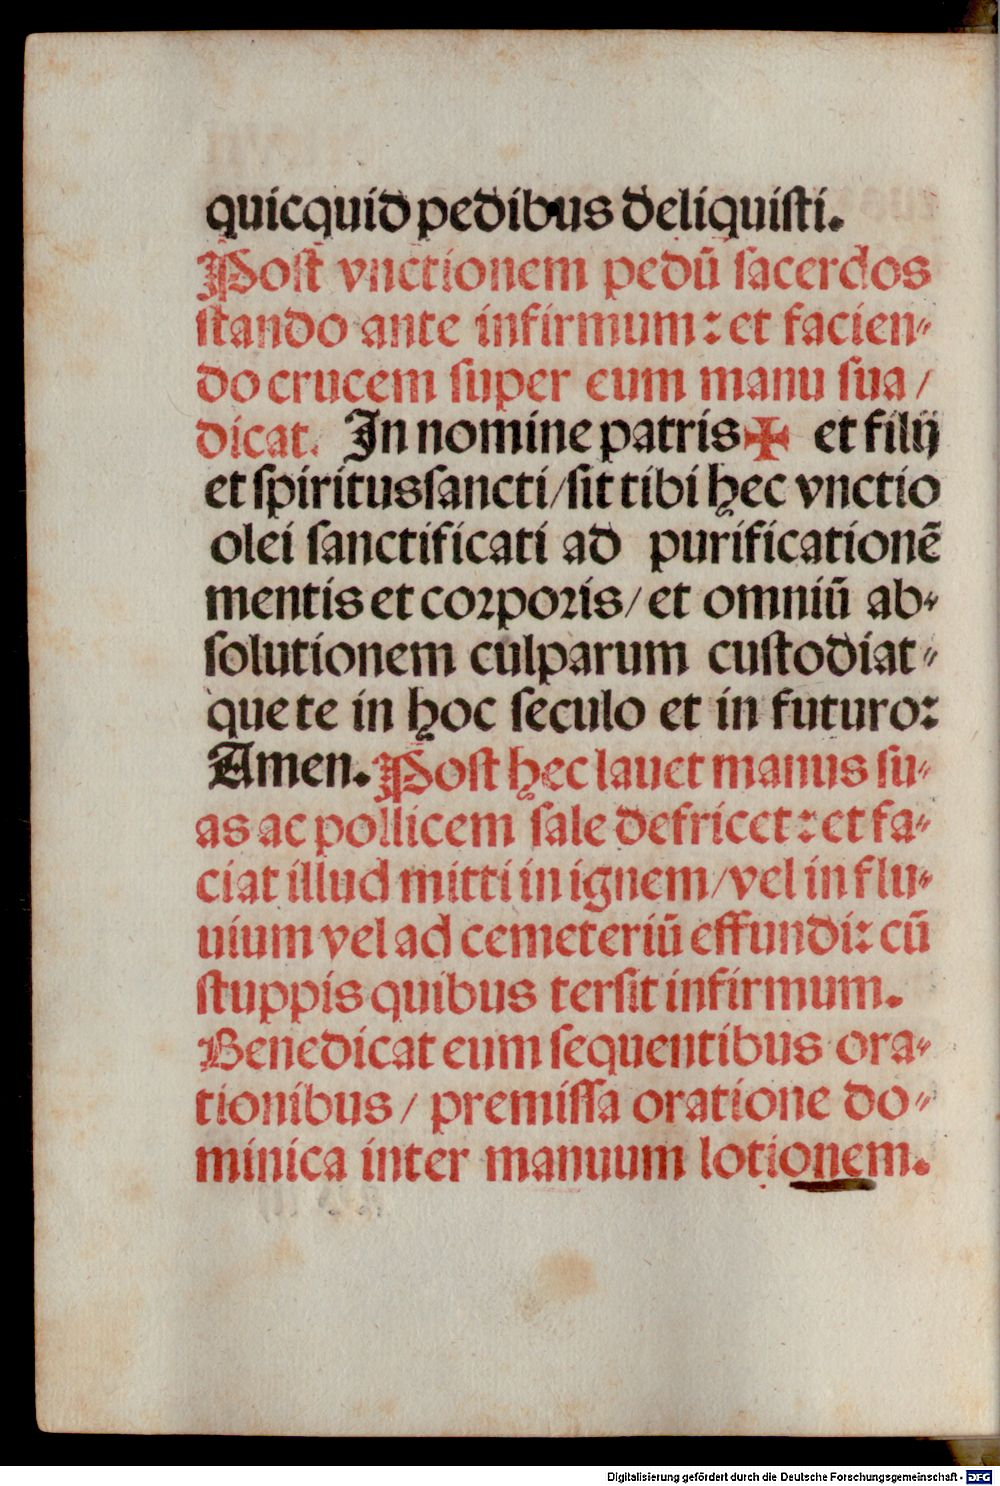 quicquid pedibus deliquisti.
Post vnctionem pedū sacerdos
stando ante infirmum: et facien⸗
do crucem super eum manu sua /
dicat. In nomine patris ✠ et filij
et spiritussancti / sit tibi hec vnctio
olei sanctificati ad purificationē
mentis et corporis / et omniū ab⸗
solutionem culparum custodiat⸗
que te in hoc seculo et in futuro:
Amen. Post hec lauet manus su⸗
as ac pollicem sale defricet: et fa⸗
ciat illud mitti in ignem / vel in flu⸗
uium vel ad cemeteriū effundi: cū
stuppis quibus tersit infirmum.
Benedicat eum sequentibus ora⸗
tionibus / premissa oratione do⸗
minica inter manuum lotionem.
Digitalisierung gefördert durch die Deutsche Forschungsgemeinschaft - DFG